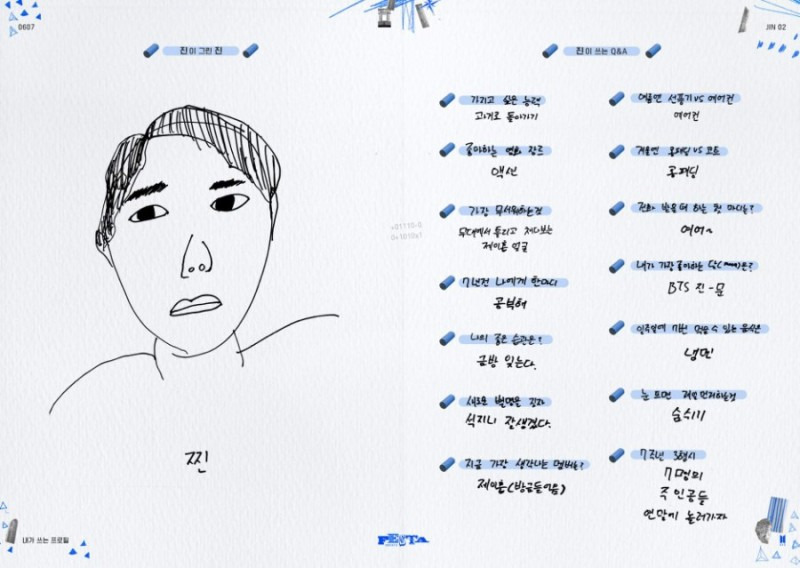 0607
진이 그린 진
찐
내가 쓰는 프로필
JIN 02
진이 쓰는 Q&A
가지고 싶은 능력
과거로 돌아가기
좋아하는 영화 장르
액션
가장 무서워하는것
무대에서 틀리고 쳐다보는
제이홉 얼굴
7년전 나에게 한마디
공부해
나의 좋은 습관은?
금방 잊는다.
새로운 별명을 짓자
석지니 잘생겼다.
지금 가장 생각나는 멤버는?
제이홉(방금들어옴)
여름엔 선풍기 vs 에어컨
에어컨
겨울엔 롱패딩 vs 코트
롱패딩
전화 받을때 하는 첫 마디는?
여어~
내가 가장 좋아하는 은?
BTS 진-문
일주일에 7번 먹을 수 있는 음식은
냉면
눈 뜨면 제일먼저하는것
숨쉬기
7주년 3행시
7명의
주인공들
연말에 놀러가자
FESTA